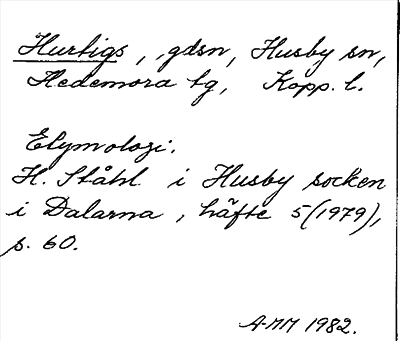 Hurtigs, gdsn, Husby sn,
Hedemora tg, Kopp. l.
Etymologi.
H. Ståhl i Husby socken
i Dalarna, häfte 5 (1979),
s. 60.
A-MM 1982.